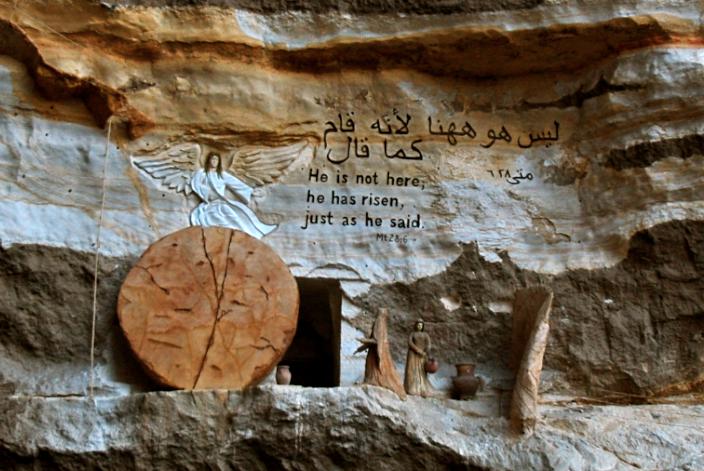 ليس هو ههنا لأنه قام
كما قال
متى ٢٨: ٦
He is not here,
he has risen,
just as he said.
Mt 28:6